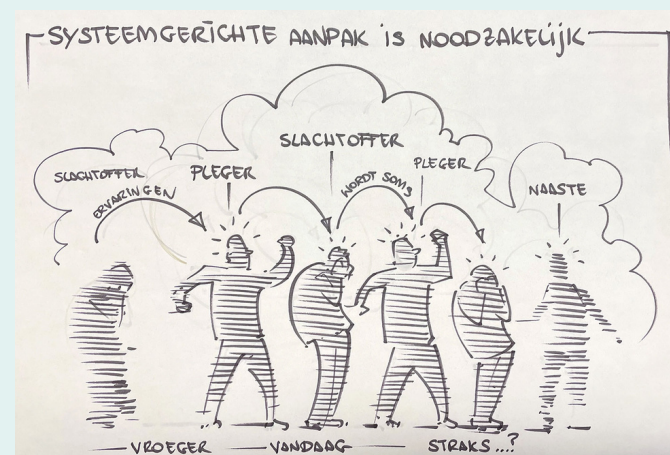 SYSTEEMGERICHTE AANPAK is NOODZAKELIJK
SLACHTOFFER
ERVARINGEN
PLEGER
SLACHTOFFER
WORDT SOMS
PLEGER
NAASTE
VROEGER
VANDAAG
STRAKS....?